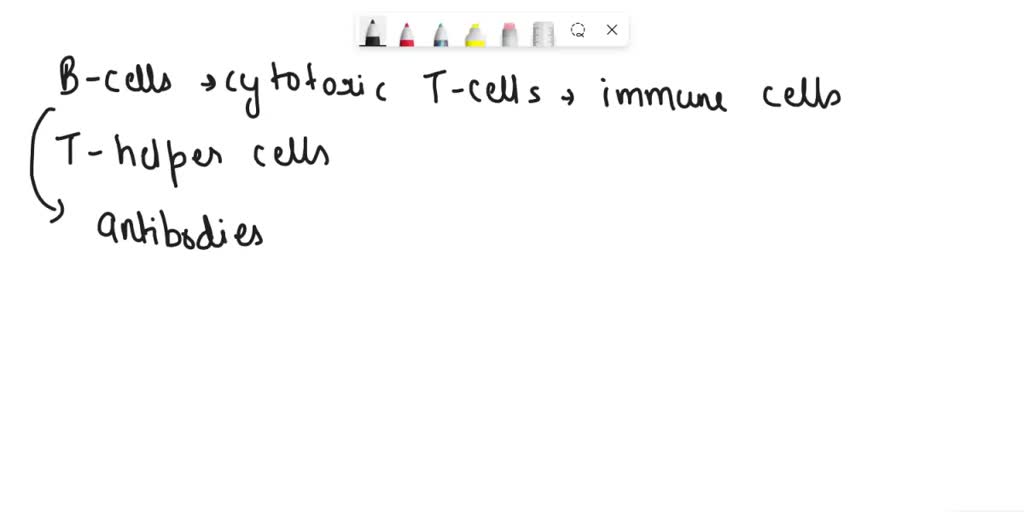 B-cells → cytotoxic T-cells → immune cells
T-helper cells
antibodies